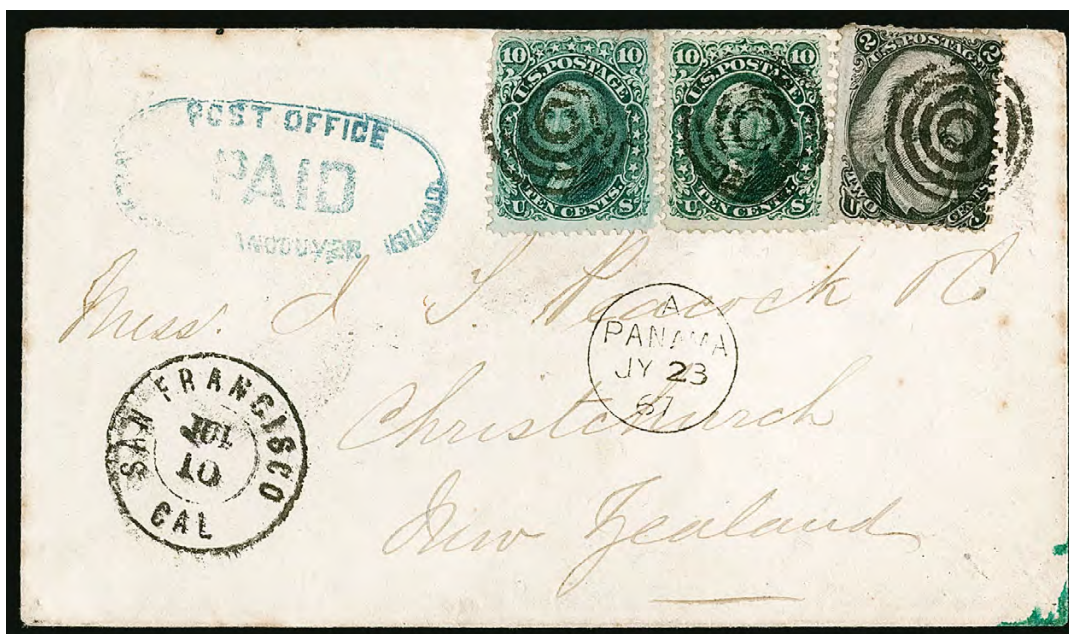 POST OFFICE
PAID
VANCOUVER ISLAND
10 10
U.S. POSTAGE
U TEN CENTS. S
10 10
U.S. POSTAGE
U TEN CENTS. S
2 2
U.S. POSTAGE
U TWO CENTS S
Miss. J. T. Peacock
Christchurch
New Zealand
A
PANAMA
JY 23
67
SAN FRANCISCO
JUL
10
CAL